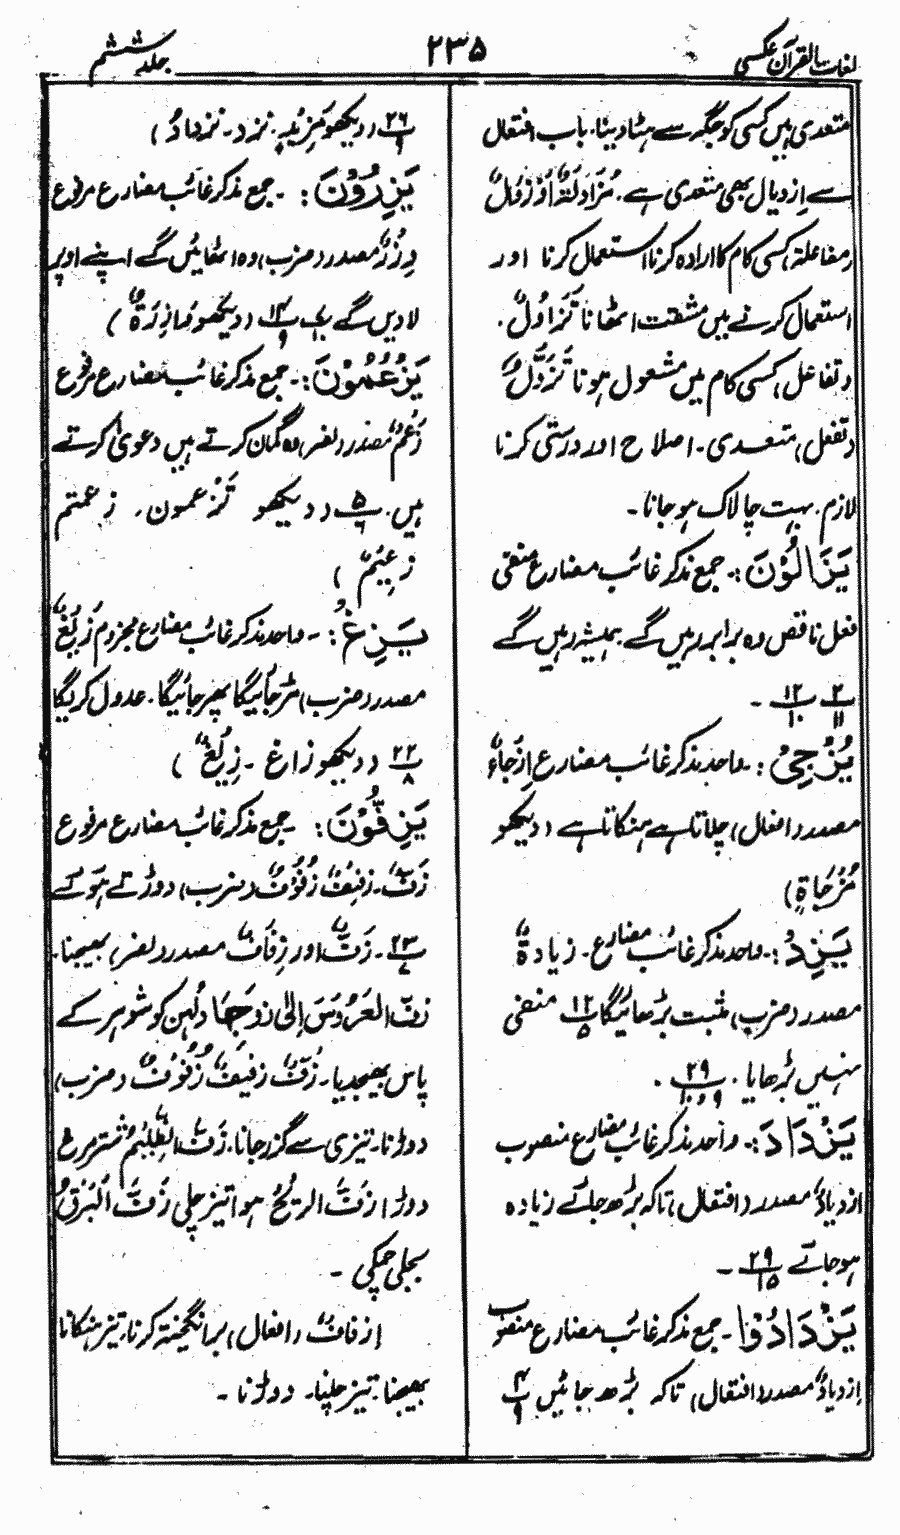 لغات القرآن عکسی
۲۳۵
جلد ششم
متعدی ہیں کسی کو جگہ سے ہٹا دینا۔ باب افتعال
سے اِزدیال بھی متعدی ہے۔ مُزَاوَلَۃٌ اَوْ زِوَالٌ
(مفاعلۃ) کسی کام کا ارادہ کرنا استعمال کرنا اور
استعمال کرنے میں مشقت اٹھانا تَزَاوُلٌ۔
(تفاعل) کسی کام میں مشغول ہونا تَزَوُّلٌ
(تفعل) متعدی۔ اصلاح اور درستی کرنا
لازم۔ بہت چالاک ہوجانا۔
یَزَالُوْنَ:۔ جمع مذکر غائب مضارع منفی
فعل ناقص وہ برابر رہیں گے۔ ہمیشہ رہیں گے
۲/۱۱ ۱۲/۱۰ ۔
یُزْجِیْ:۔ واحد مذکر غائب مضارع اِزْجَاءٌ
مصدر (افعال) چلاتا ہے ہنکاتا ہے (دیکھو
مُزْجَاۃٍ)
یَزِدْ:۔ واحد مذکر غائب مضارع۔ زیادۃٌ
مصدر (ضرب) مثبت بڑھائیگا ۱۲/۵ منفی
نہیں بڑھایا۔ ۲۹/۹ و ۱۰ ۔
یَزْدَادَ:۔ واحد مذکر غائب مضارع منصوب
ازدیادٌ مصدر (افتعال) تاکہ بڑھ جائے زیادہ
ہوجائے ۲۹/۱۵ ۔
یَزْدَادُوْا۔ جمع مذکر غائب مضارع منصوب
ازدیادٌ مصدر (افتعال) تاکہ بڑھ جائیں ۴/۹
۲۶/۹ (دیکھو مَزِیْدٍ۔ نزد۔ نزداد)
یَزِرُوْنَ:۔ جمع مذکر غائب مضارع مرفوع
وِزْرٌ مصدر (ضرب) وہ اٹھائیں گے اپنے اوپر
لادیں گے ۷/۱۰ ۱۴/۹ (دیکھو وَازِرَۃٌ)
یَزْعُمُوْنَ:۔ جمع مذکر غائب مضارع مرفوع
زَعْمٌ مصدر (نصر) وہ گمان کرتے ہیں دعویٰ کرتے
ہیں۔ ۵/۶ (دیکھو تَزْعمون۔ زعمتم
زَعِیْمٌ)
یَزِغْ:۔ واحد مذکر غائب مضارع مجزوم زَیْغٌ
مصدر (ضرب) مڑ جائیگا پھر جائیگا۔ عدول کریگا
۲۲/۸ (دیکھو زاغ۔ زِیْغٌ)
یَزِفُّوْنَ:۔ جمع مذکر غائب مضارع مرفوع
زَفٌّ۔ زفیفٌ زُفُوْفٌ (ضرب) دوڑتے ہوئے
۲۳/۷۔ زَفٌّ اور زِفَافٌ مصدر (نصر) بھیجنا۔
زفّ العَرُوْسَ اِلٰی زَوْجِہَا دلہن کو شوہر کے
پاس بھیجدیا۔ زَفٌّ زفیفٌ زُفُوْفٌ (ضرب)
دوڑنا۔ تیزی سے گزر جانا۔ زَفَّ الظَّلِیْمُ شترمرغ
دوڑا زَفَّتِ الریحُ ہوا تیز چلی زَفَّ الْبَرْقُ
بجلی چمکی ۔
ازفافٌ (افعال) برانگیختہ کرنا۔ تیز ہنکانا
بھیجنا۔ تیز چلنا۔ دوڑنا ۔